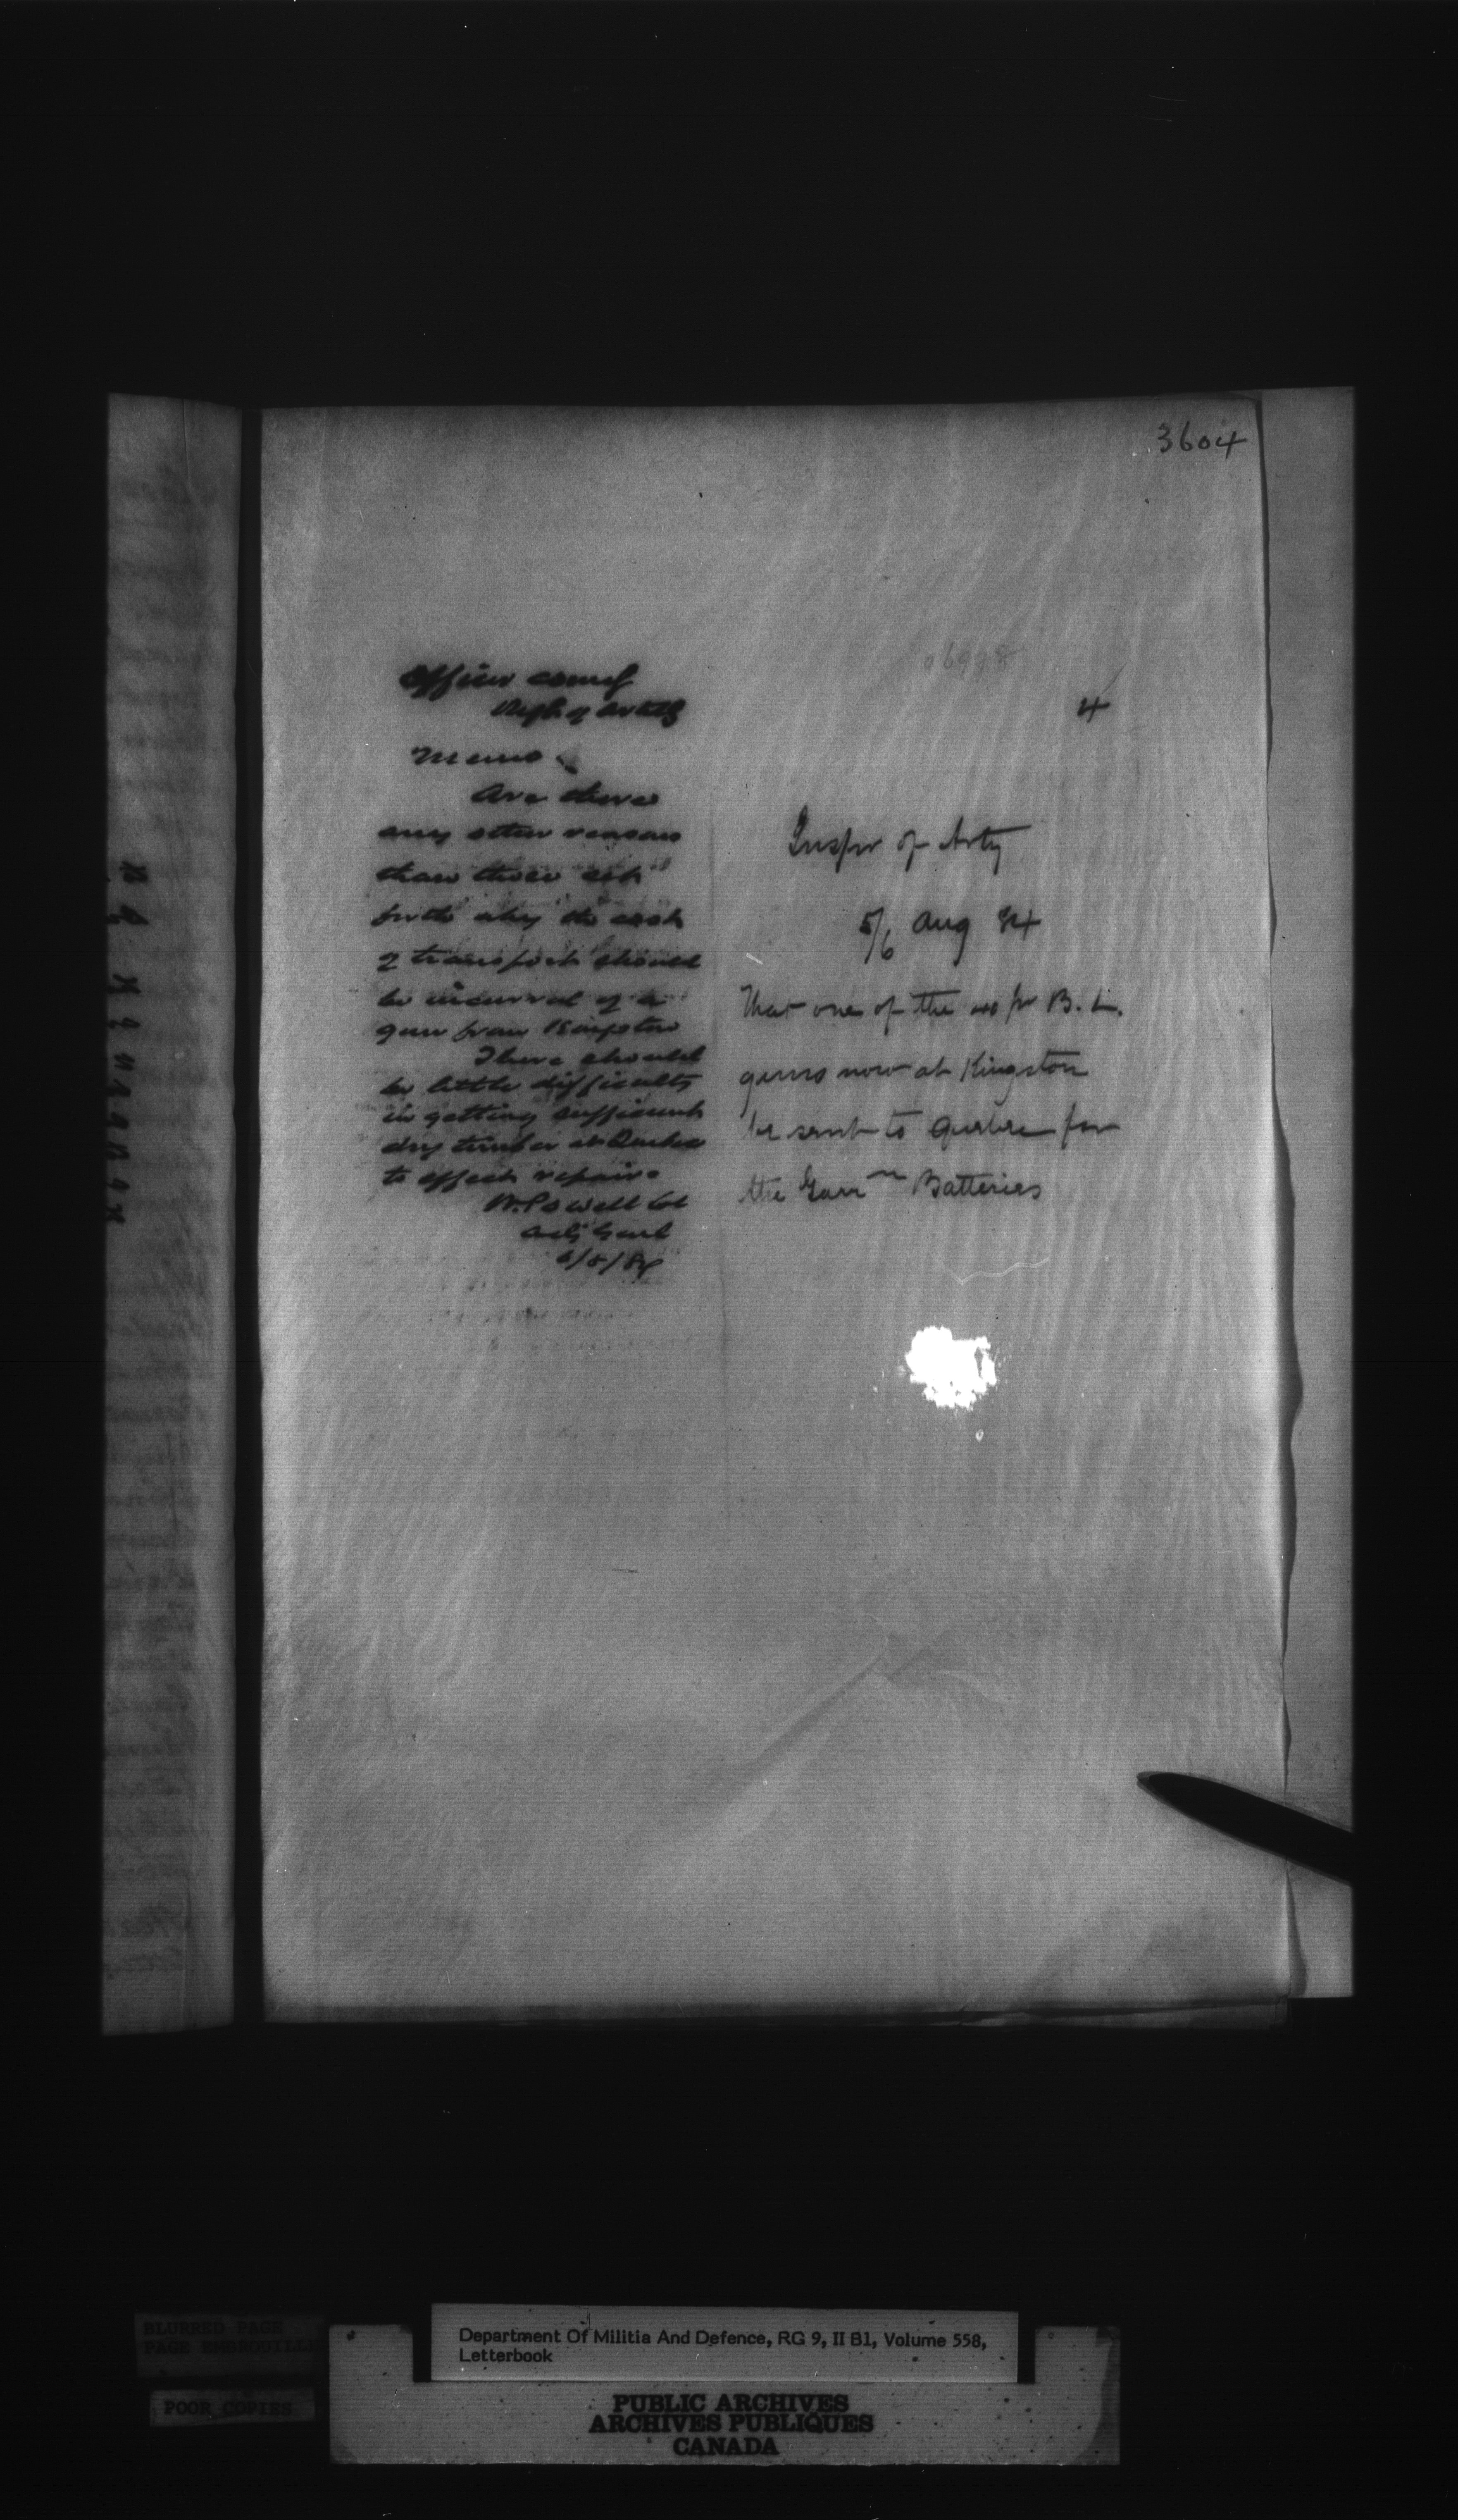 3604
06998
4
Officer comdg
Regt of Artilly
Memo
Are there
any other reasons
than those set
forth why the cost
of transport should
be incurred of a
gun from Kingston
There should
be little difficulty
in getting sufficient
dry timber at Quebec
to effect repairs
W. Powell Col
Adjt Genl
6/8/84
Inspr of Arty
5/6 Aug 84
That one of the 40 pr B. L.
guns now at Kingston
be sent to Quebec for
the Garrn Batteries
BLURRED PAGE
PAGE EMBROUILL
POOR COPIES
Department Of Militia And Defence, RG 9, II B1, Volume 558,
Letterbook
PUBLIC ARCHIVES
ARCHIVES PUBLIQUES
CANADA